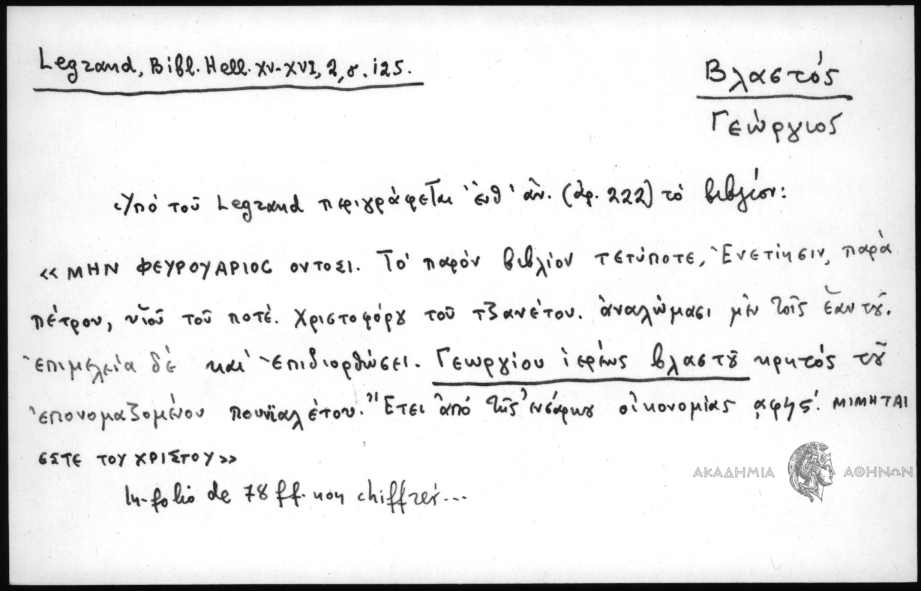 Legrand, Bibl. Hell. XV-XVI, 2, σ. 125.
Βλαστός
Γεώργιος
Ὑπό τοῦ Legrand περιγράφεται ἐνθ' ἀν. (ἀρ. 222) τό βιβλίον:
«ΜΗΝ ΦΕΥΡΟΥΑΡΙΟC ΟΝΤΟΣΙ. Τό παρόν βιβλίον τετύποτε, Ἐνετίησιν, παρά
πέτρου, υἱοῦ τοῦ ποτέ. Χριστοφόρȣ τοῦ τζανέτου. ἀναλώμασι μέν τοῖς ἑαυτȣ͂.
ἐπιμελεία δέ καί ἐπιδιορθώσει. Γεωργίου ἱερέως βλαστȣ͂ κρητός τȣ͂
ἐπονομαζομένου πουνιαλέτου. Ἔτει ἀπό τῆς ἐνσάρκȣ οἰκονομίας ͵αφξς΄. ΜΙΜΗΤΑΙ
ΕΣΤΕ ΤΟΥ ΧΡΙΣΤΟΥ»
ΑΚΑΔΗΜΙΑ ΑΘΗΝΩΝ
In-folio de 78 ff. non chiffrés...